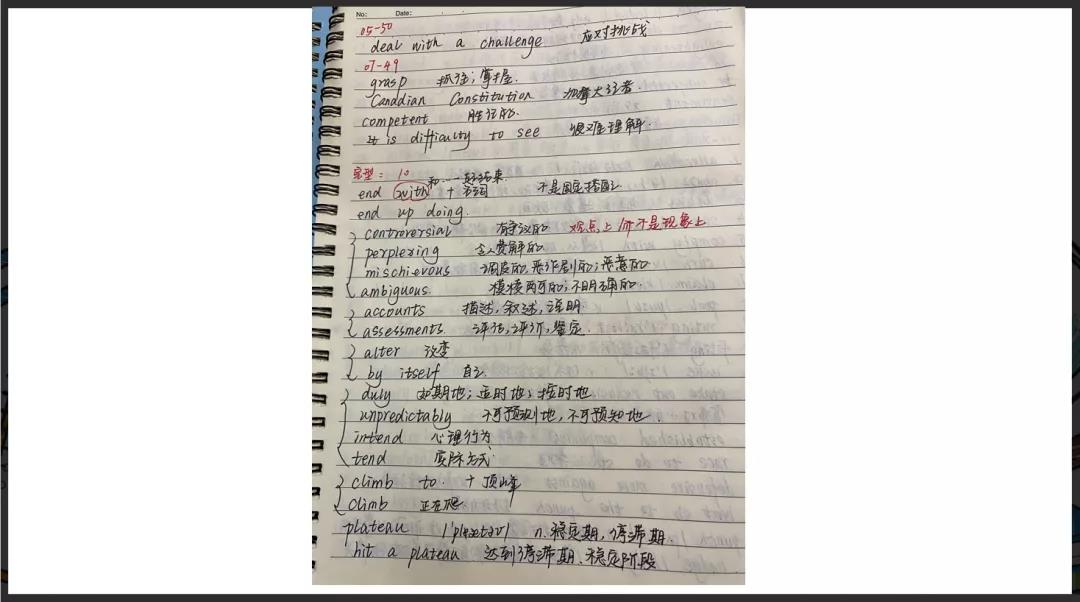 No:        Date:
05-50
deal with a challenge 应对挑战
07-49
grasp 抓住;掌握.
Canadian Constitution 加拿大
competent 胜任的.
It is difficulty to see 很难理解.
完型: 10
和……结束
end with + 名词 不是固定搭配
end up doing.
controversial 有争议的 观点上 而不是现象上
perplering 令人费解的
mischievous 调皮的,恶作剧的;恶意的
ambiguous. 模棱两可的;不明确的.
accounts 描述,叙述,说明.
assessments. 评估,评价,鉴定.
alter 改变
by itself 自己
duly 如期地;适时地;按时地
unpredictably 不可预测地,不可预知地.
intend 心理行为
tend 实际
climb to. + 顶峰
climb 正在爬
plateau n.稳定期,停滞期.
hit a plateau 达到停滞期、稳定阶段